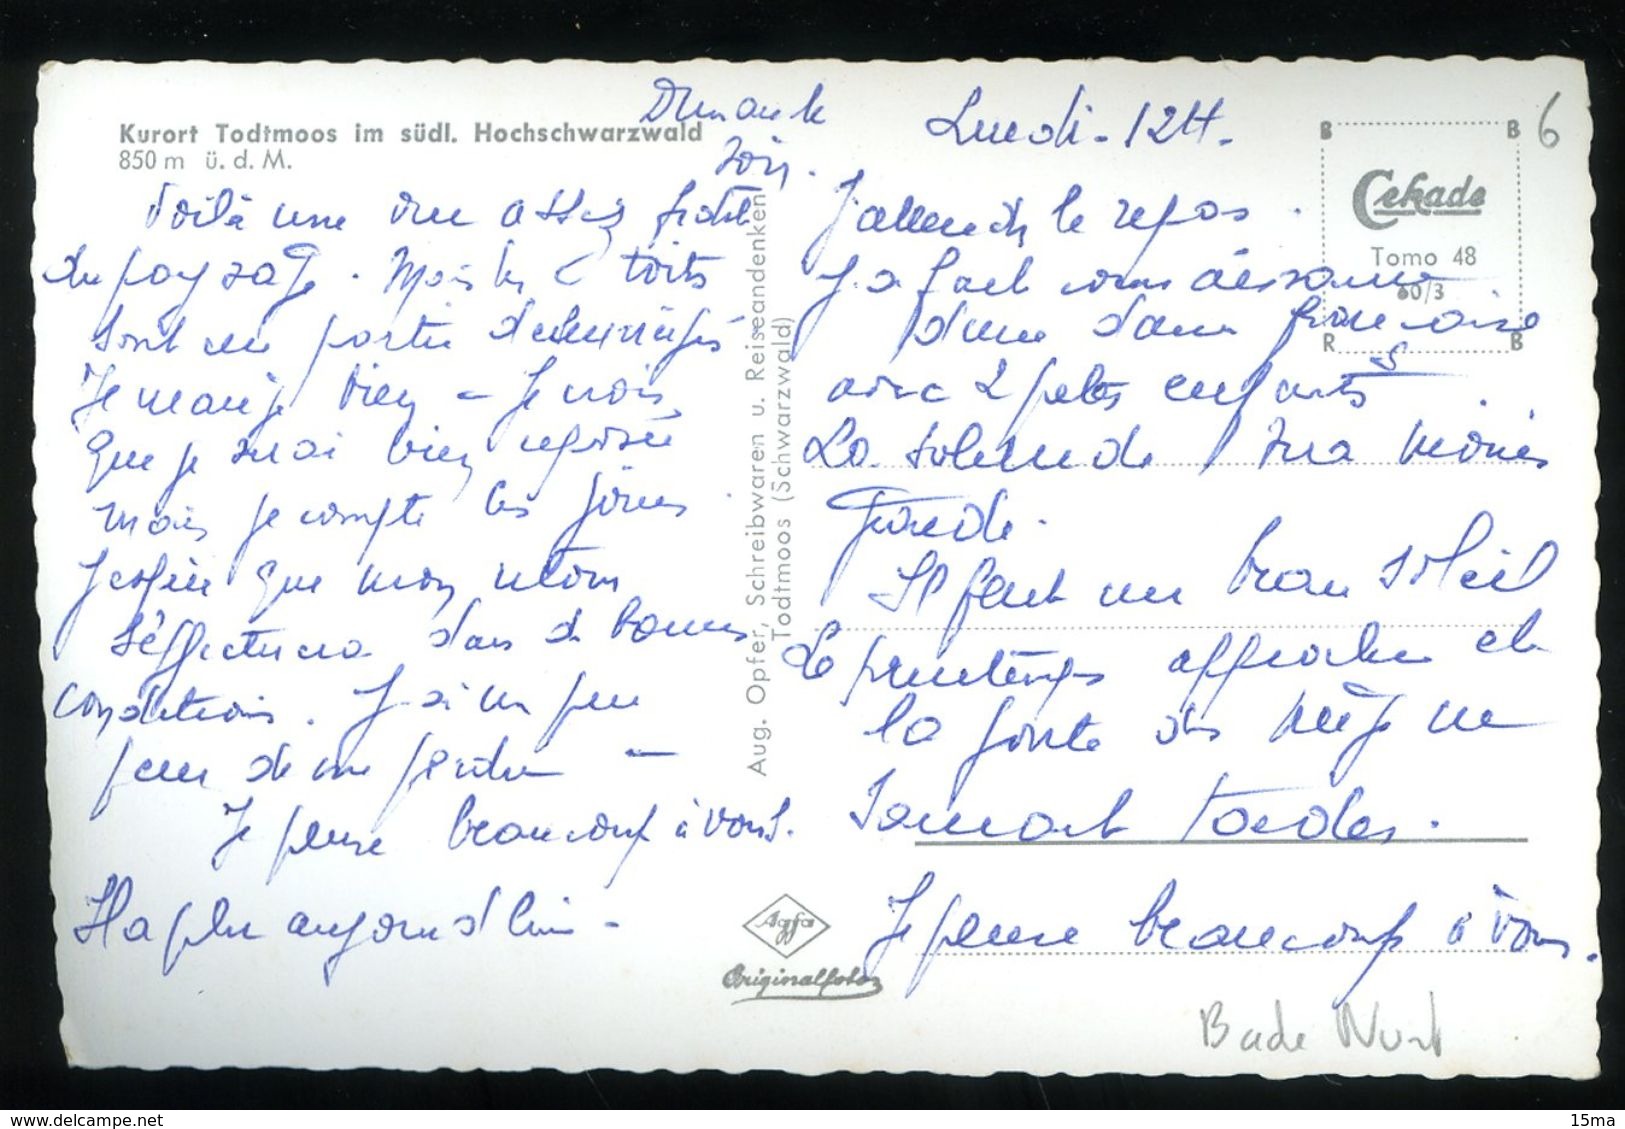 Kurort Todtmoos im südl. Hochschwarzwald
850 m ü. d. M.
Dimanche
soir.
Voilà une vue assez fidèle
du paysage. Mais les toits
sont en partie déneigés
Je mange bien – Je crois
que je serai bien reposée
mais je compte les jours.
J'espère que mon retour
s'effectuera dans de bonnes
conditions. J'ai un peu
peur de me perdre –
Je pense beaucoup à vous.
Il a plu aujourd'hui –
Aug. Opfer, Schreibwaren u. Reiseandenken
Todtmoos (Schwarzwald)
Agfa
Originalfoto
Lundi – 12H.
J'attends le repas.
J'ai fait connaissance
d'une dame française
avec 2 petits enfants.
La solitude sera moins
grande.
Il fait un beau soleil
Le printemps approche et
la fonte des neiges ne
saurait tarder.
Je pense beaucoup à vous.
B B
Cekade
Tomo 48
60/3
R B
6
Bade Wurt
delcampe.net
15ma